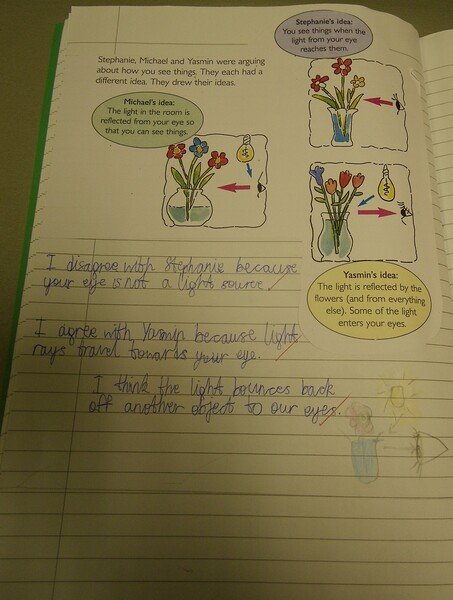 Stephanie's idea:
You see things when the
light from your eye
reaches them.
Stephanie, Michael and Yasmin were arguing
about how you see things. They each had a
different idea. They drew their ideas.
Michael's idea:
The light in the room is
reflected from your eye so
that you can see things.
Yasmin's idea:
The light is reflected by the
flowers (and from everything
else). Some of the light
enters your eyes.
I disagree with Stephanie because
your eye is not a light source.
I agree with Yasmin because light
rays travel towards your eye.
I think the light bounces back
off another object to our eyes.